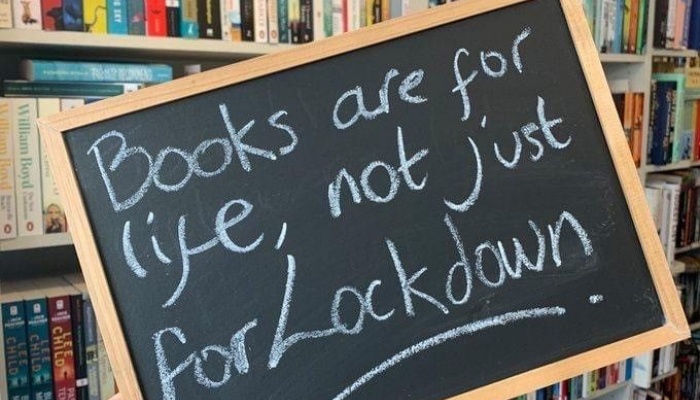 Books are for
life, not just
for Lockdown.
William Boyd
William Boyd
LEE CHILD
LEE CHILD
LEE CHILD